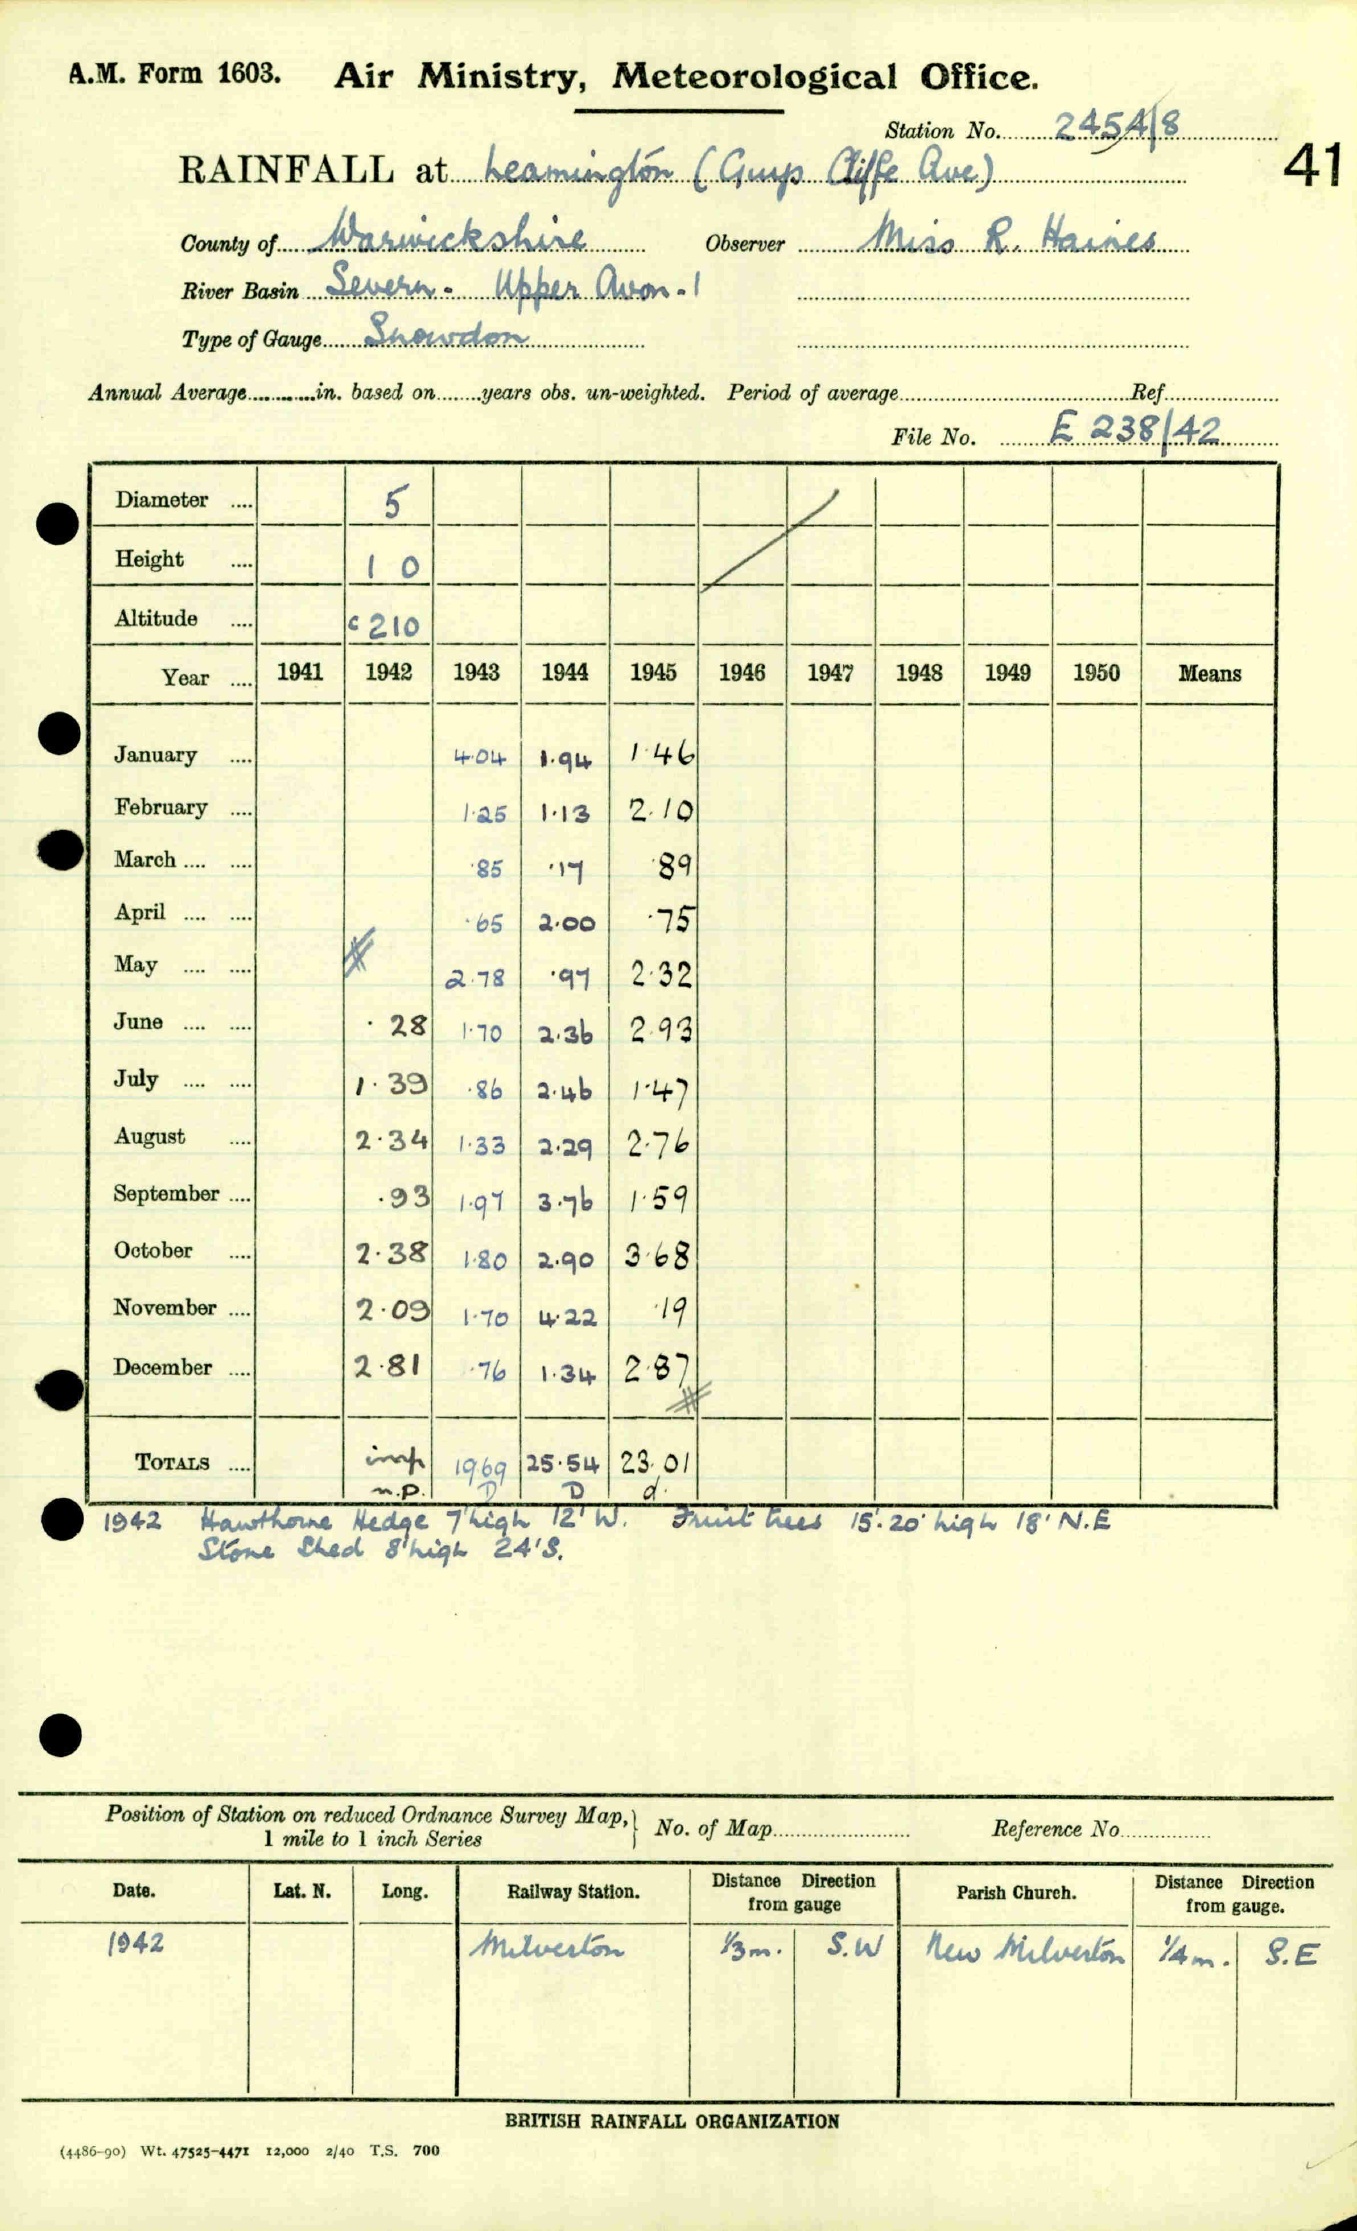 A.M. Form 1603. Air Ministry, Meteorological Office.
Station No. 2454/8
41
RAINFALL at Leamington (Guys Cliffe Ave)
County of Warwickshire Observer Miss R. Haines
River Basin Severn - Upper Avon - 1
Type of Gauge Snowdon
Annual Average in. based on years obs. un-weighted. Period of average Ref
File No. E 238/42
Diameter 5
Height 1 0
Altitude c 210
Year 1941 1942 1943 1944 1945 1946 1947 1948 1949 1950 Means
January 4.04 1.94 1.46
February 1.25 1.13 2.10
March .85 .17 .89
April .65 2.00 .75
May 2.78 .97 2.32
June .28 1.70 2.36 2.93
July 1.39 .86 2.46 1.47
August 2.34 1.33 2.29 2.76
September .93 1.97 3.76 1.59
October 2.38 1.80 2.90 3.68
November 2.09 1.70 4.22 .19
December 2.81 .76 1.34 2.87
TOTALS imp 19.69 25.54 23.01
n.p. D D d.
1942 Hawthorne Hedge 7' high 12' W. Fruit trees 15'.20' high 18' N.E
Stone Shed 8' high 24' S.
Position of Station on reduced Ordnance Survey Map, No. of Map Reference No
1 mile to 1 inch Series
Date. Lat. N. Long. Railway Station. Distance Direction from gauge Parish Church. Distance Direction from gauge.
1942 Milverton 1/3 m. S.W New Milverton 1/4 m. S.E
BRITISH RAINFALL ORGANIZATION
(4486-90) Wt. 47525-4471 12,000 2/40 T.S. 700